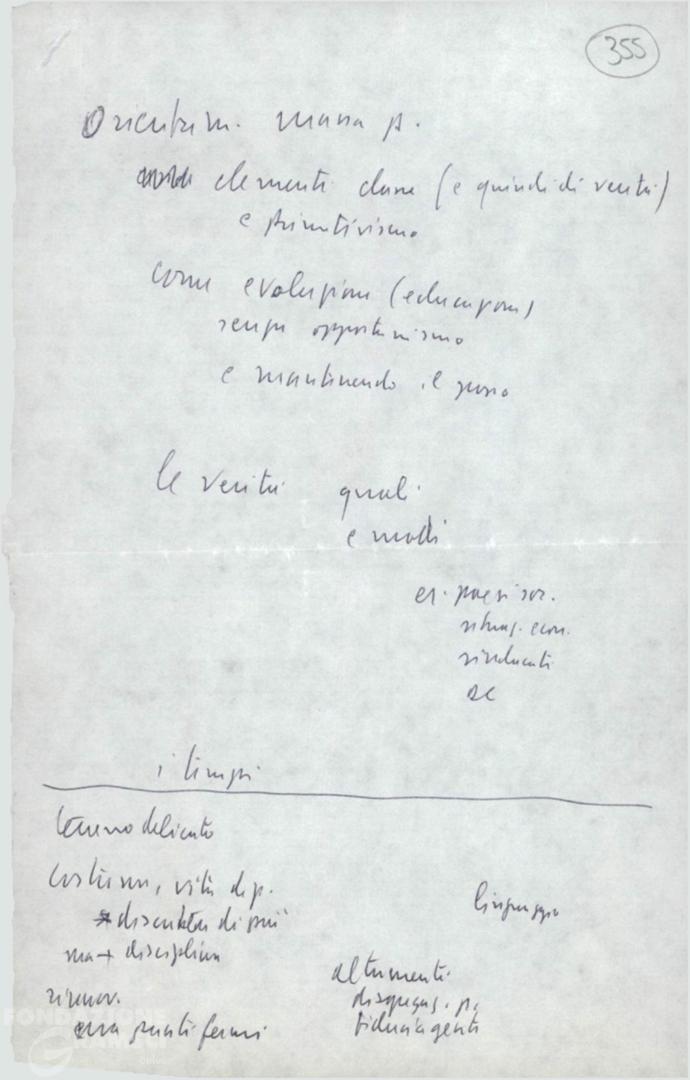 355
Orientam. massa p.
elementi classe (e quindi di verità)
e primitivismo
come evoluzione (educazione)
senza opportunismo
e mantenendo il passo
le verità quali
e modi
es. paesi soc.
situaz. econ.
sindacati
DC
i tempi
terreno delicato
costume, vita di p.
discutere di più
linguaggio
ma + disciplina
altrimenti
rinnov.
disgregaz. p.
ma punti fermi
fiducia gente
FONDAZIONE
GRAMSCI